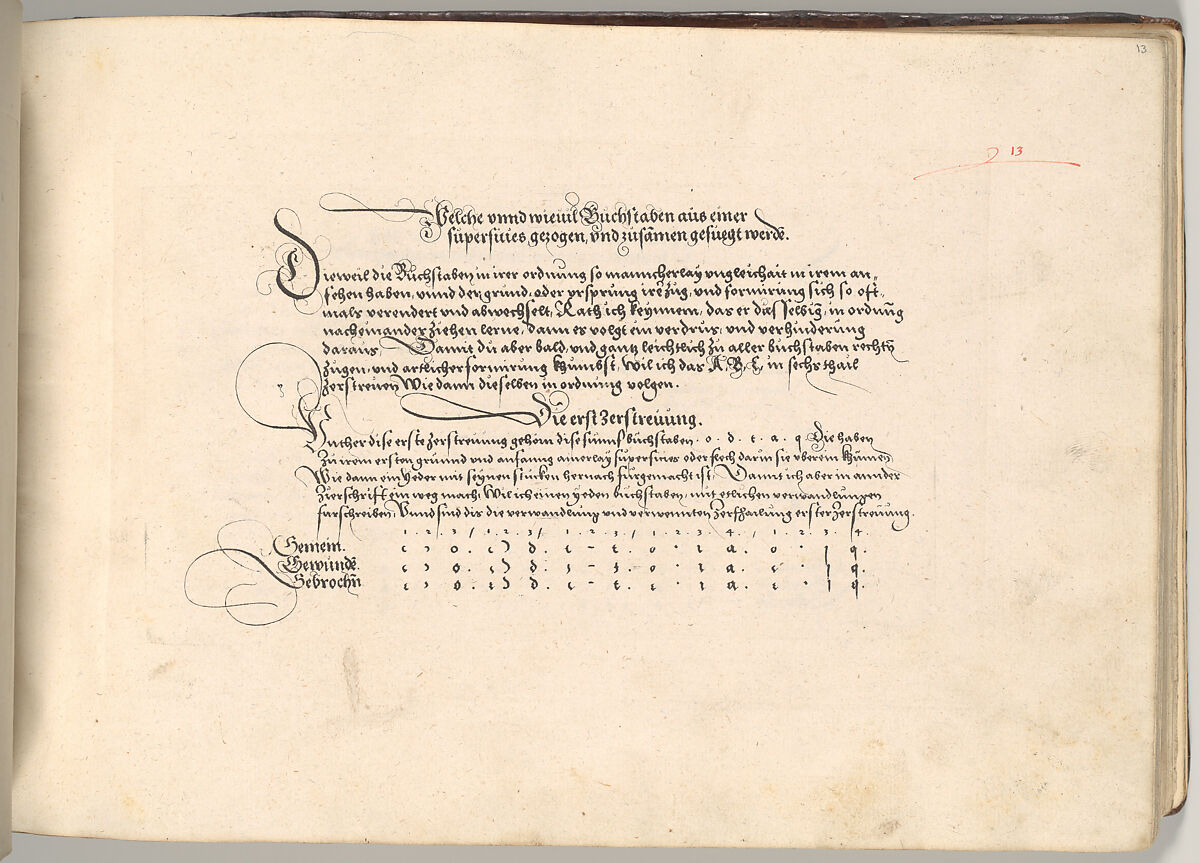 13
13
Welche vnnd wieuil Buchstaben aus einer
superficies gezogen, vnd zusamen gefuegt werdē.
Dieweil die Buchstaben in irer ordnung so manncherlay vngleichait in irem an„
sehen haben, vnnd der grund, oder vrsprung irer zug, vnd formirung sich so oft„
mals verendert vnd abwechselt, Rath ich keynnem, das er dieselbig, in ordnūg
nacheinander ziehen lerne, dann es volgt ein verdrus, vnd verhinderung
daraus, Damit du aber bald, vnd gantz leichtlich zu aller buchstaben rechtn̄
zugen, vnd artlicher formirung khumbst, Wil ich das A, B, C, in sechs thail
zerstreuen Wie dann dieselben in ordnung volgen.
Die erst Zerstreuung.
Inther dise erste zerstreuung gehörn dise fünnf buchstaben . o . d . t . a . q Die haben
Zu irem ersten grund vnd anfanng ainerlay superficies oder flech darin sie vberein khumen
Wie dann ein Yeder mit seynen stucken hernach furgemacht ist, Damit ich aber in annder
Zierschrift ein weg mach, Wil ich einen yeden buchstaben, mit etlichen verwandlungen
furschreiben, Vnnd sind dis die verwandlung vnd verwennten Zerthailung erster Zerstreuung.
1 . 2 . 3 / 1 . 2 . 3 / 1 . 2 . 3 / 1 . 2 . 3 . 4 . 1 . 2 . 3 . 4 .
Gemein. o . d . t . o ı a . o q .
Gewundē. o . d . t . o ı a . q .
Gebrochn̄ o . d . t . ı a . q .
3